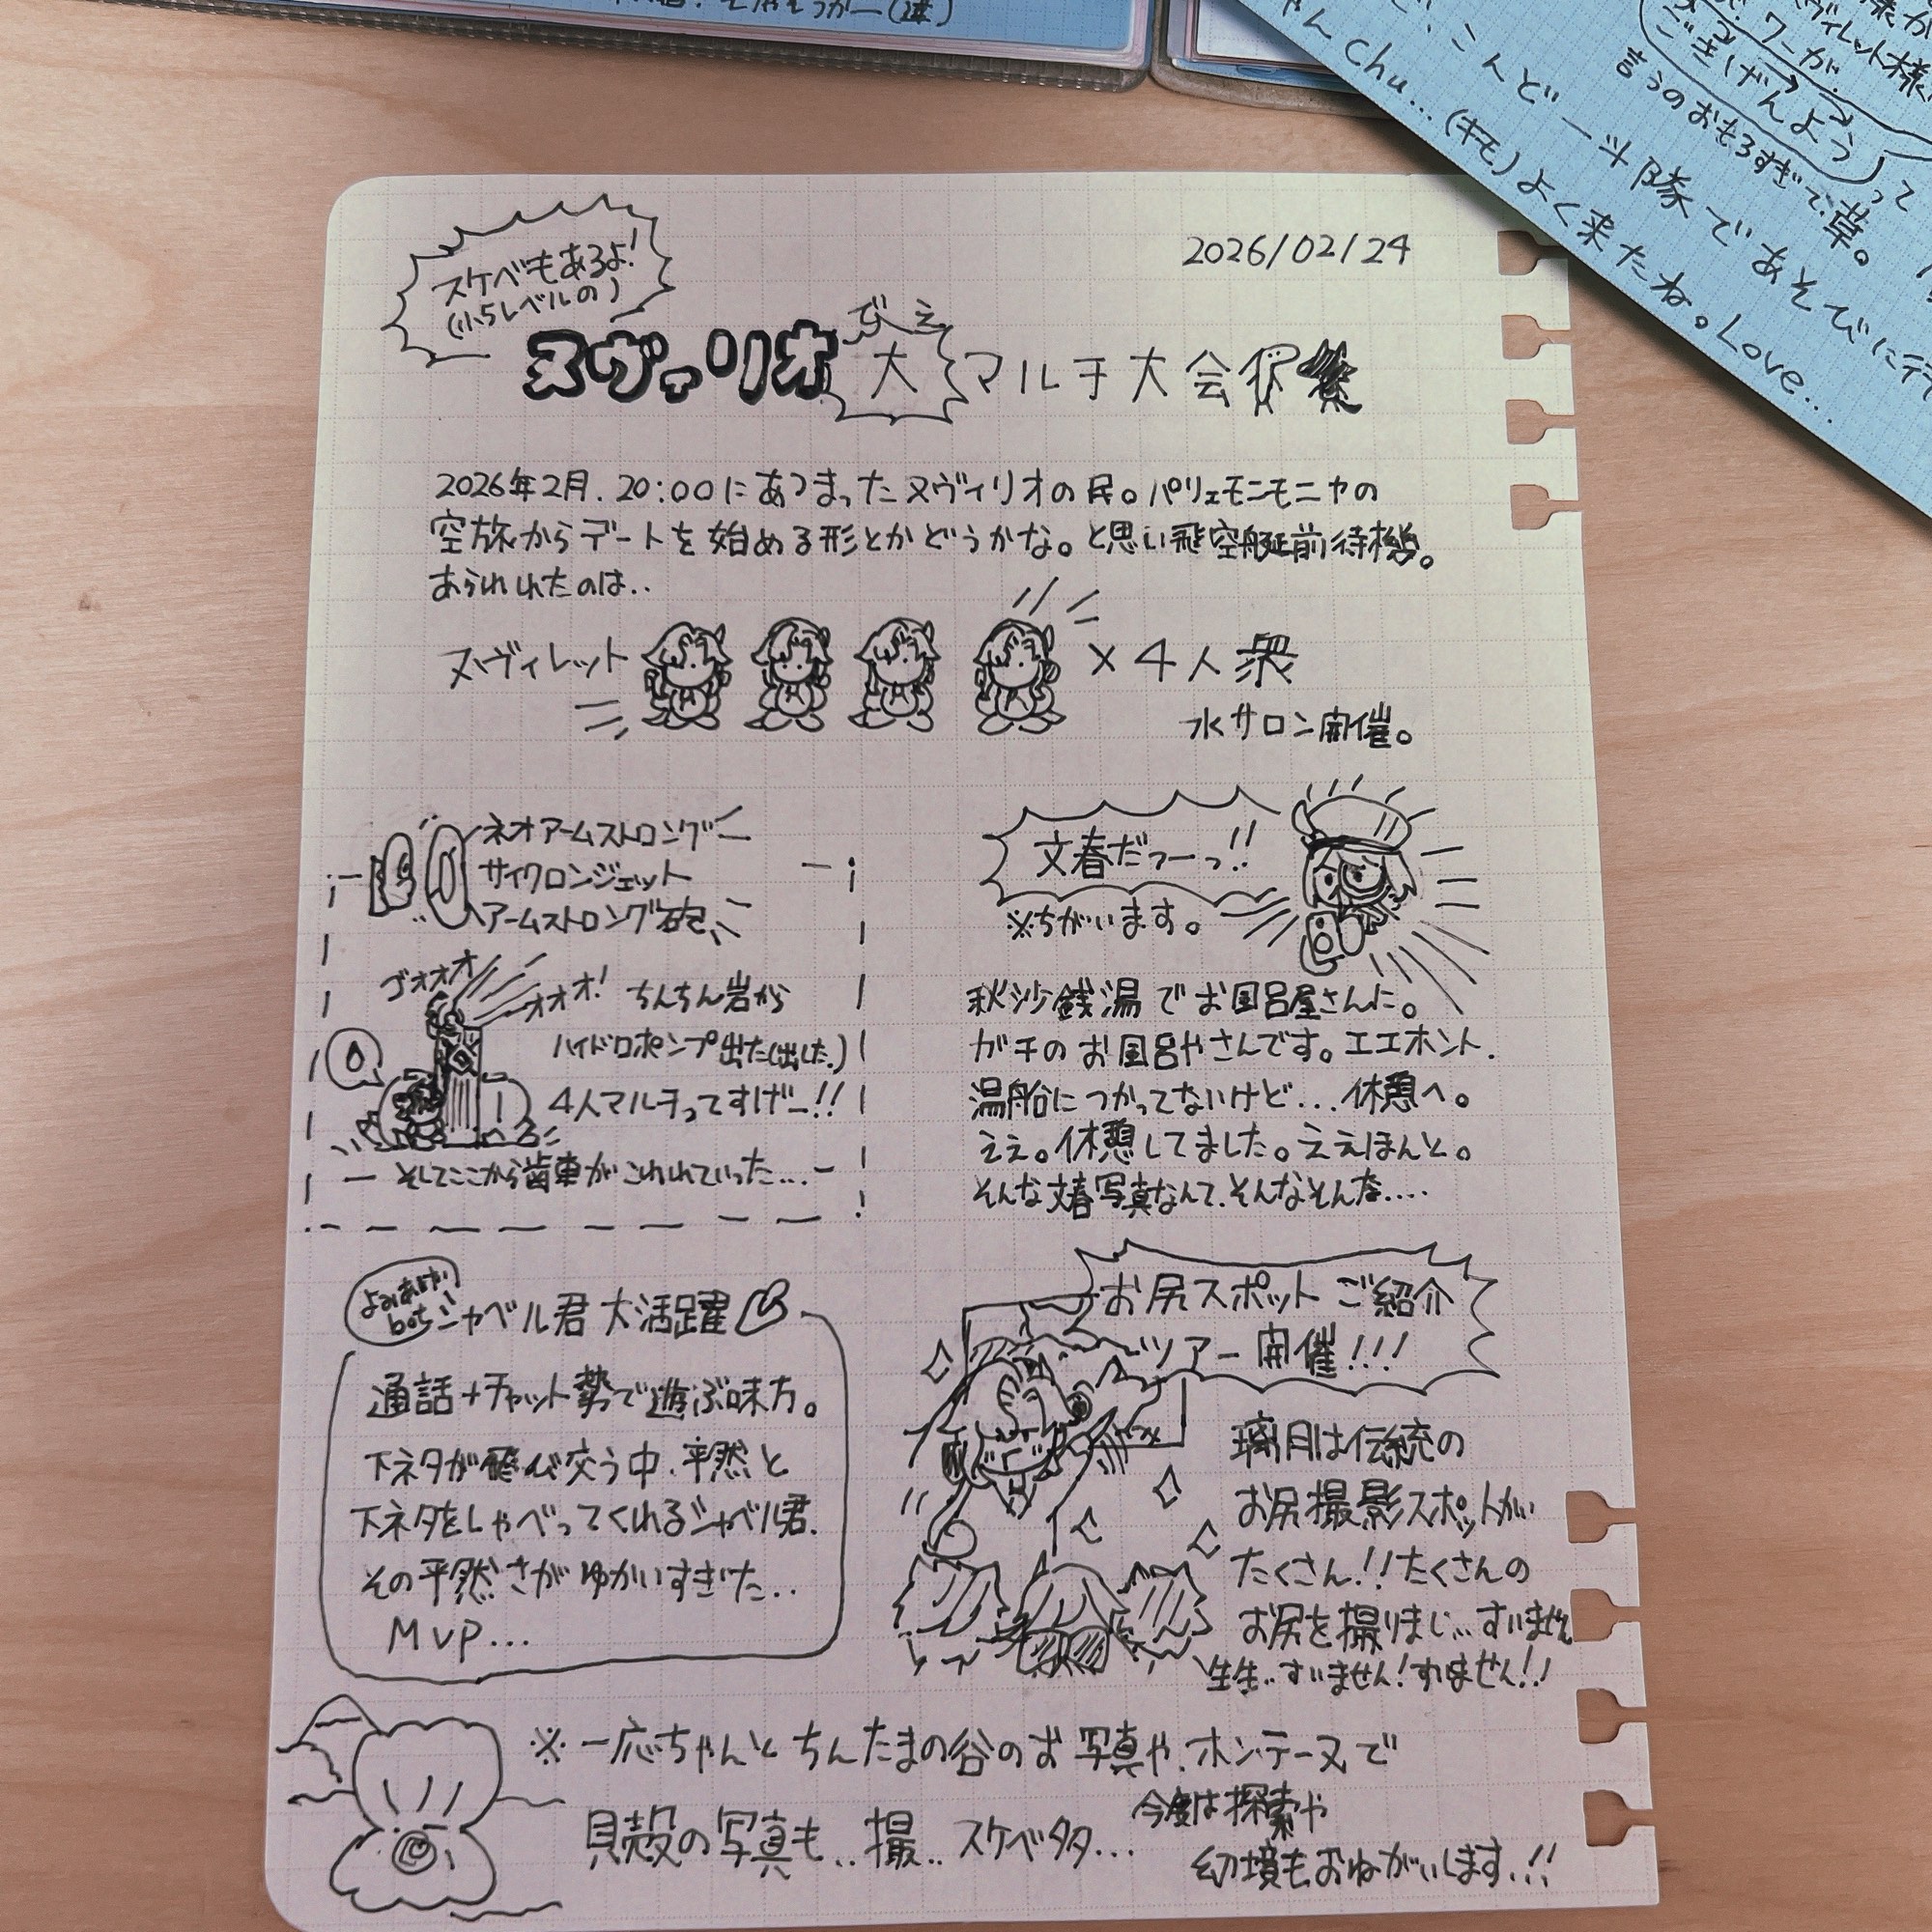 スケベもあるよ!
(小5レベルの)
2026/02/24
でぇ
ヌヴィリオ大マルチ大会
2026年2月. 20:00にあつまったヌヴィリオの民。パリェモニモニャの
空旅からデートを始める形とかどうかな。と思い飛空艇前待機。
あらわれたのは..
ヌヴィレット ×4人衆
水サロン開催。
ネオアームストロング
サイクロンジェット
アームストロング砲
ゴオオオ
オオオ!
ちんちん岩から
ハイドロポンプ出た(出した.)
4人マルチってすげー!!
そしてここから歯車がこわれていった...
文春だっーっ!!
※ちがいます。
秋沙銭湯でお風呂屋さんに。
ガチのお風呂やさんです。エエホント.
湯船につかってないけど...休憩へ。
ええ。休憩してました。ええほんと。
そんな文春写真なんて.そんなそんな....
よみあげ
bot
シャベル君 大活躍
通話+チャット勢で遊ぶ味方。
下ネタが飛び交う中.平然と
下ネタをしゃべってくれるシャベル君.
その平然さがゆかいすぎた...
MVP...
お尻スポットご紹介
ツアー開催!!!
璃月は伝統の
お尻撮影スポットが
たくさん!!たくさんの
お尻を撮りまし...すいません
生生..すいません!すいません!!
※一応ちゃんとちんたまの谷のお写真や.ホンテーヌで
貝殻の写真も..撮..スケベタタ...
今度は探索や
幻境もおねがいします.!!
ごきげんよう
って
言うのおもろすぎて草。
こんど一斗隊であそびに行
ゃんChu...(キモ)よく来たね。Love...